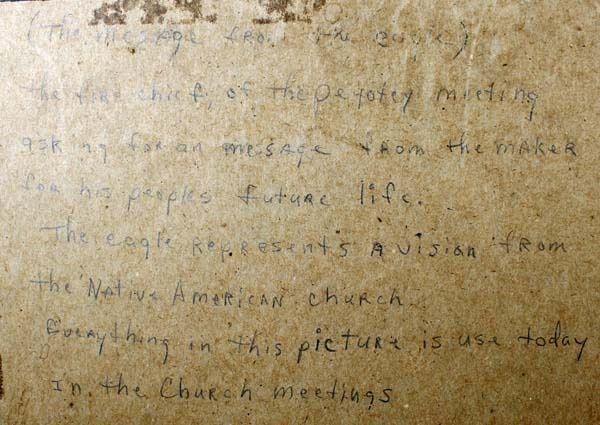 (The message from the eagle)
the fire chief, of the peyotey meeting
asking for an message from the maker
for his peoples future life.
The eagle represent's a vision from
the Native American church
Everything in this picture is use today
In the Church meetings